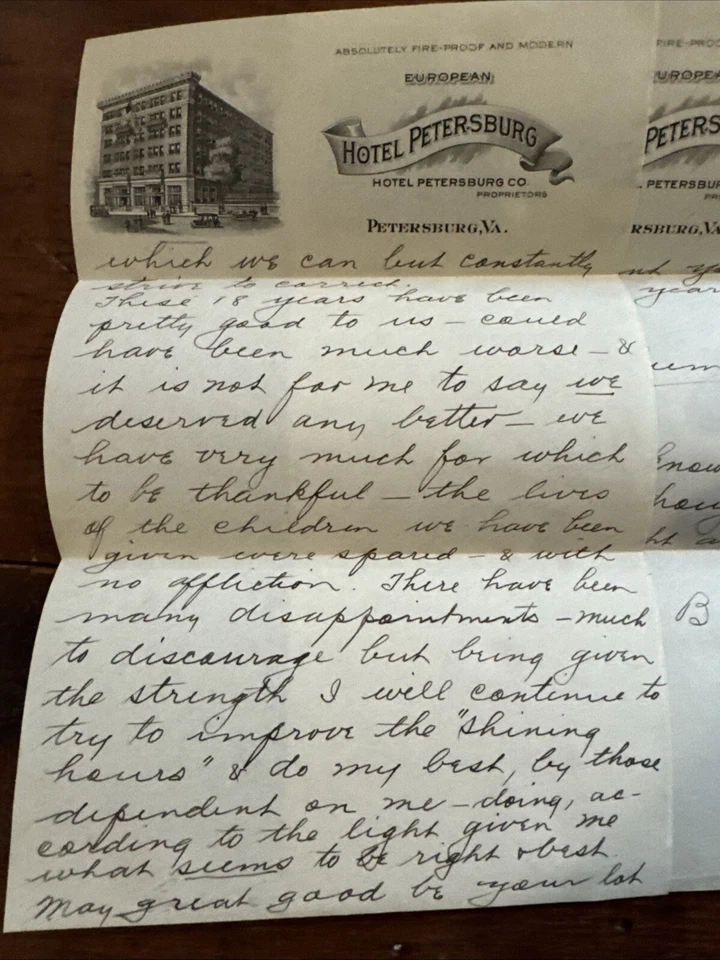 ABSOLUTELY FIRE-PROOF AND MODERN
EUROPEAN
HOTEL PETERSBURG
HOTEL PETERSBURG CO.
PROPRIETORS
PETERSBURG, VA.
which we can but constantly
strive to correct.
These 18 years have been
pretty good to us – could
have been much worse – &
it is not for me to say we
deserved any better – we
have very much for which
to be thankful – the lives
of the children we have been
given were spared – & with
no affliction. There have been
many disappointments – much
to discourage but being given
the strength I will continue to
try to improve the "shining
hours" & do my best, by those
dependent on me – doing, ac-
cording to the light given me
what seems to be right & best
May great good be your lot
FIRE-PROO
UROPEA
PETERS
. PETERSBUR
PR
RSBURG, VA
year
know
B